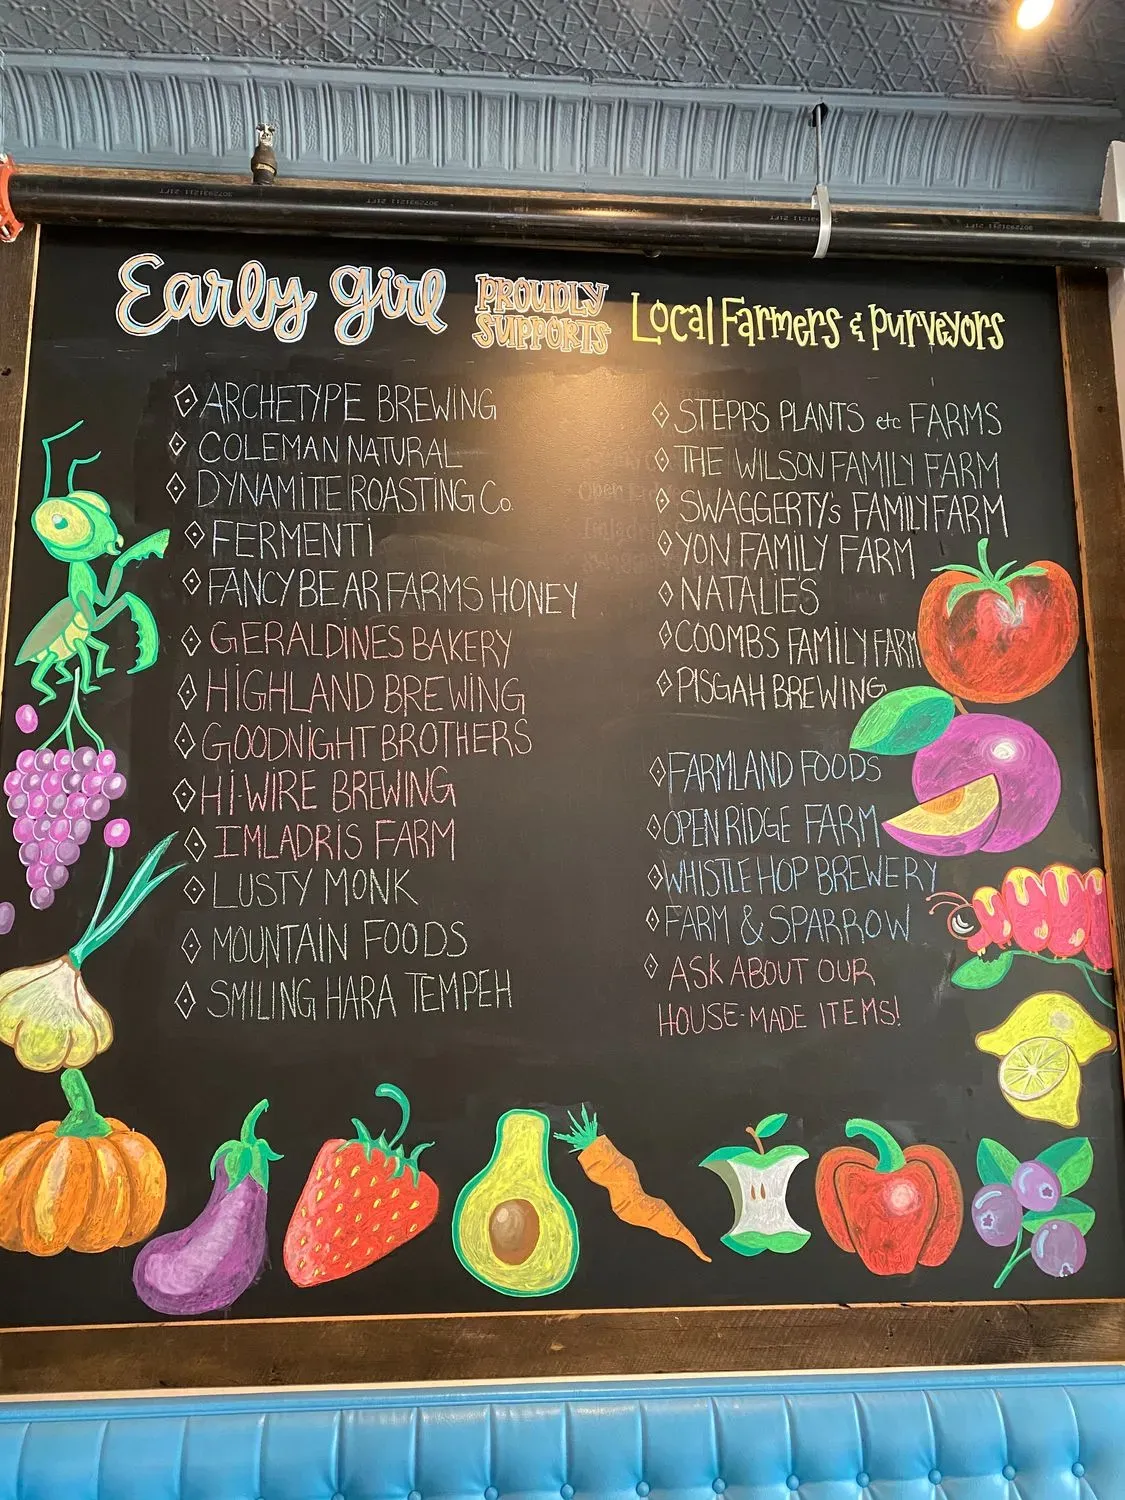 Early girl PROUDLY SUPPORTS Local Farmers & Purveyors
ARCHETYPE BREWING
COLEMAN NATURAL
DYNAMITE ROASTING Co.
FERMENTI
FANCY BEAR FARMS HONEY
GERALDINES BAKERY
HIGHLAND BREWING
GOODNIGHT BROTHERS
HI-WIRE BREWING
IMLADRIS FARM
LUSTY MONK
MOUNTAIN FOODS
SMILING HARA TEMPEH
STEPPS PLANTS etc FARMS
THE WILSON FAMILY FARM
SWAGGERTY's FAMILY FARM
YON FAMILY FARM
NATALIE'S
COOMBS FAMILY FARM
PISGAH BREWING
FARMLAND FOODS
OPEN RIDGE FARM
WHISTLE HOP BREWERY
FARM & SPARROW
ASK ABOUT OUR
HOUSE-MADE ITEMS!